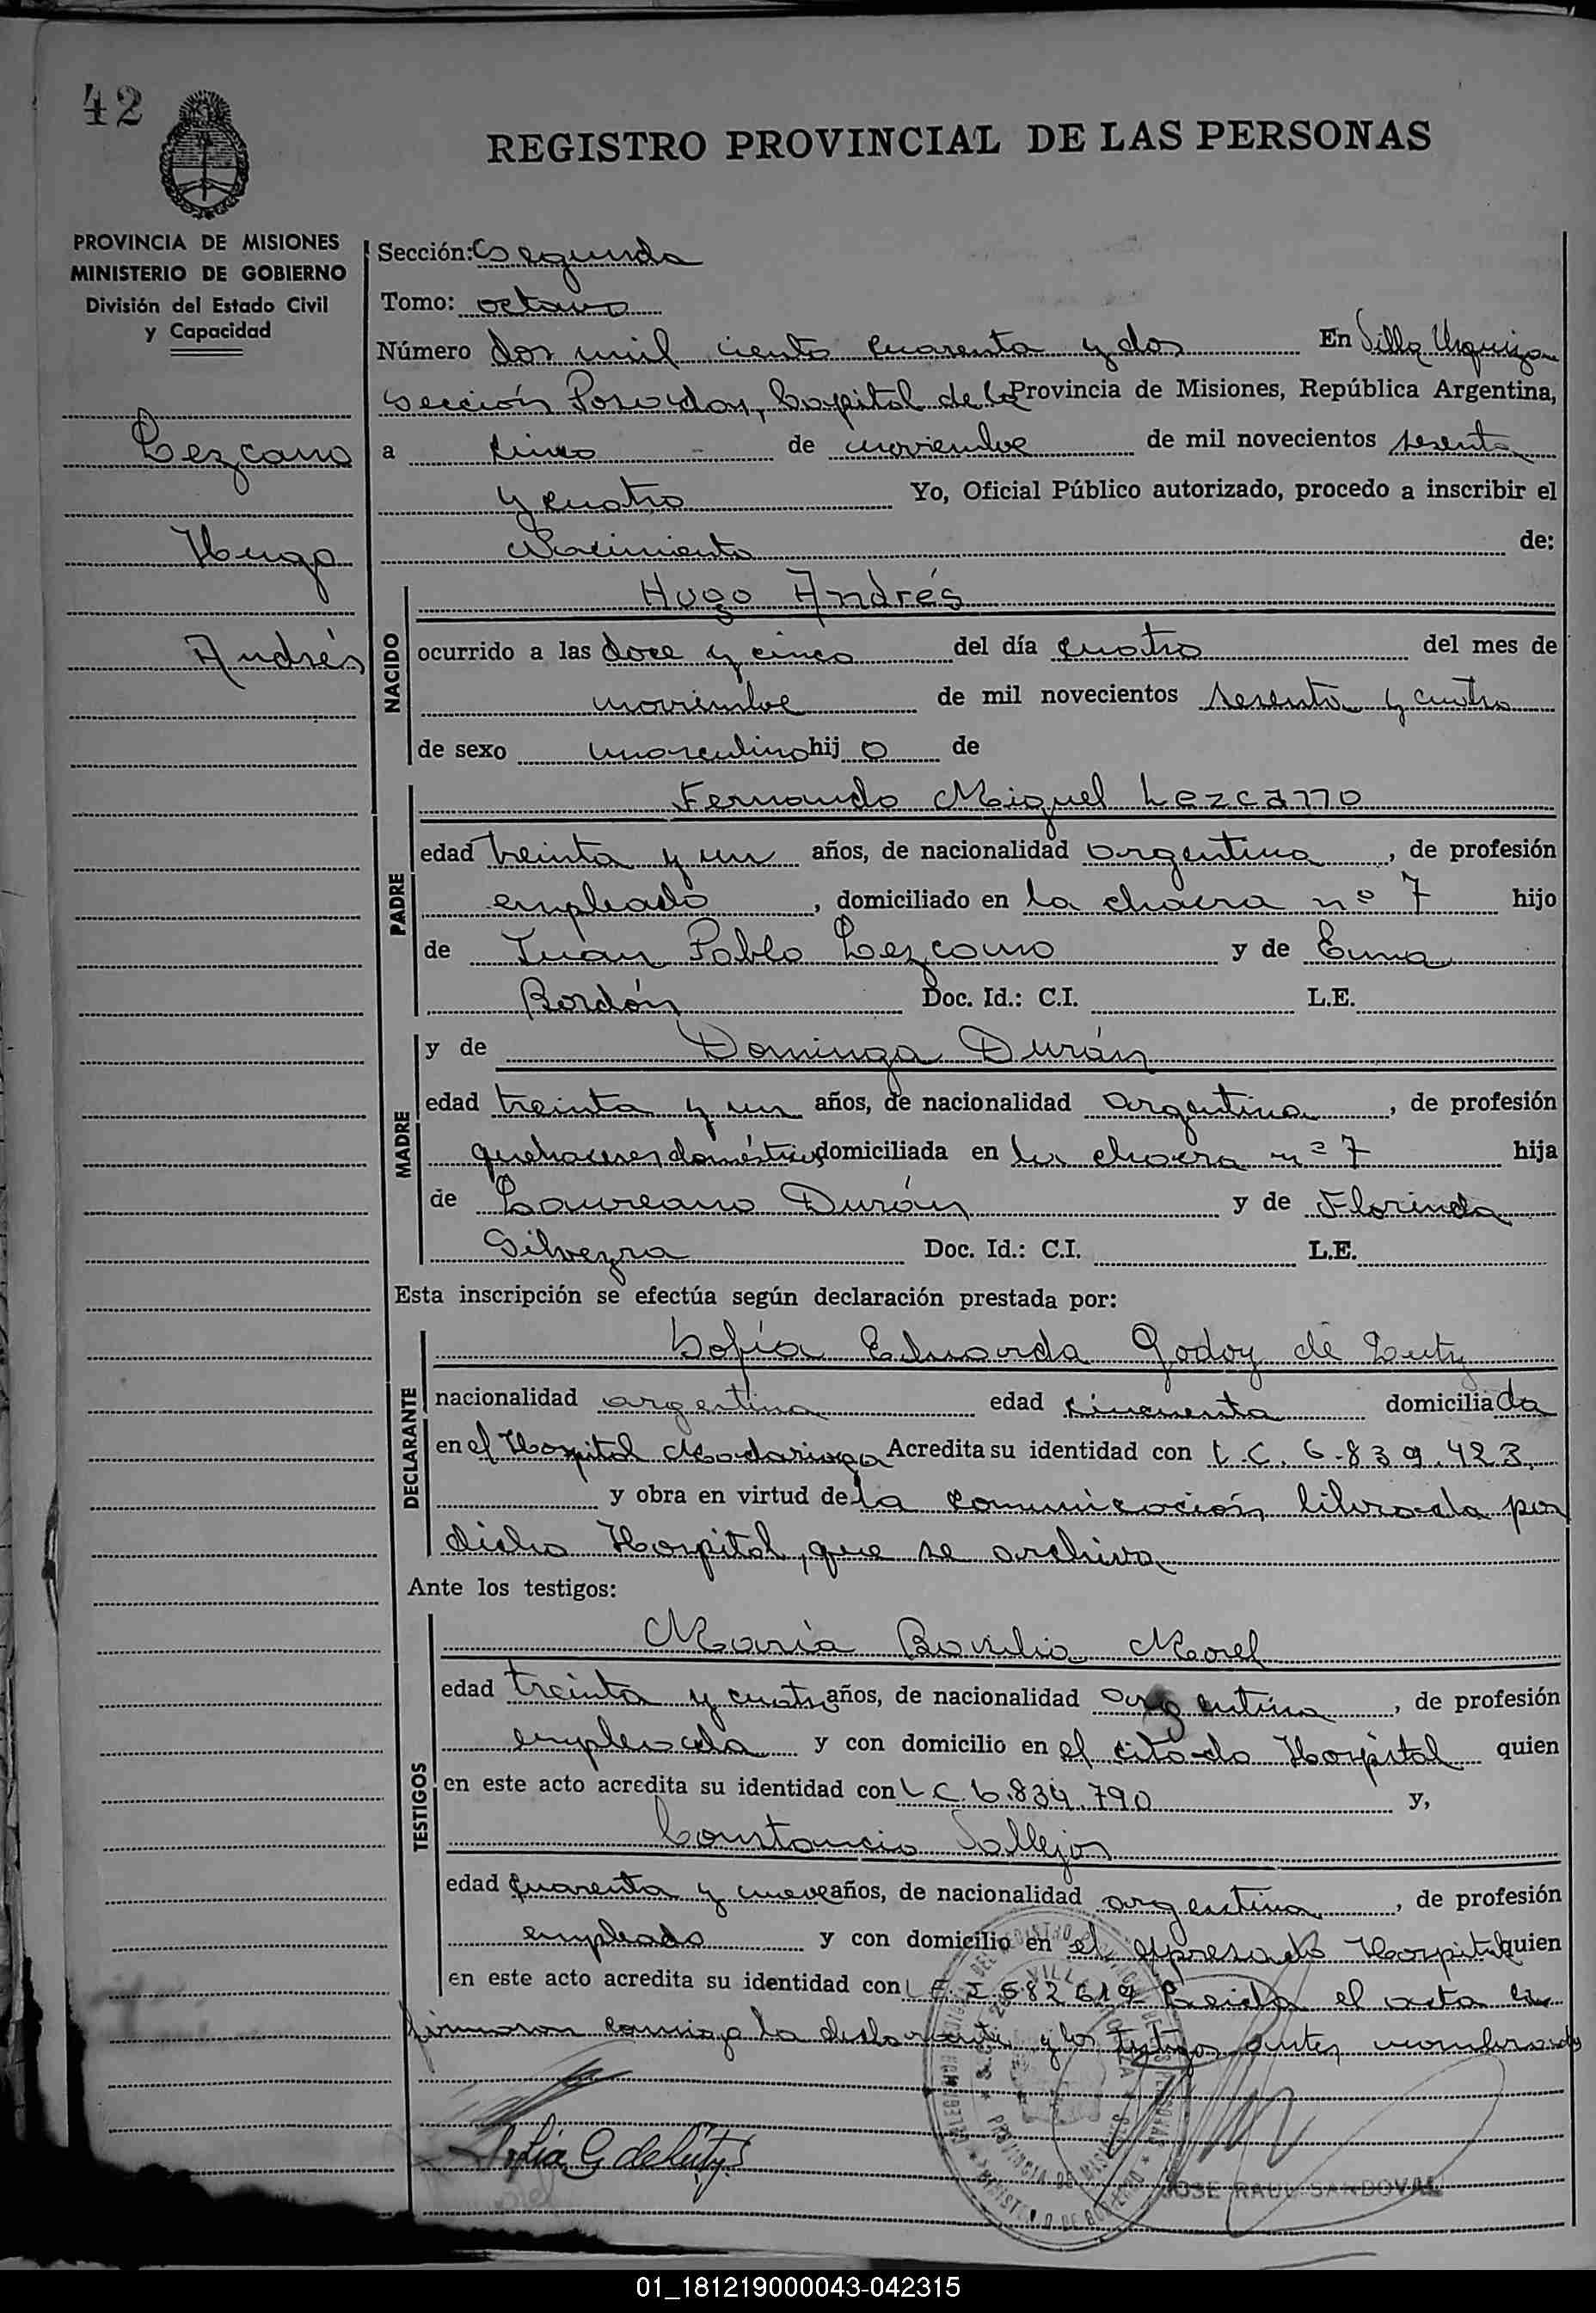 42
REGISTRO PROVINCIAL DE LAS PERSONAS
PROVINCIA DE MISIONES
MINISTERIO DE GOBIERNO
División del Estado Civil
y Capacidad
Lezcano
Hugo
Andrés
Sección: Segunda
Tomo: octavo
Número dos mil ciento cuarenta y dos En Villa Urquiza
sección Posadas, Capital de la Provincia de Misiones, República Argentina,
a cinco de noviembre de mil novecientos sesenta
y cuatro Yo, Oficial Público autorizado, procedo a inscribir el
Nacimiento de:
NACIDO
Hugo Andrés
ocurrido a las doce y cinco del día cuatro del mes de
noviembre de mil novecientos sesenta y cuatro
de sexo masculino hij o de
PADRE
Fernando Miguel Lezcano
edad treinta y un años, de nacionalidad argentina, de profesión
empleado, domiciliado en la chacra nº 7 hijo
de Juan Pablo Lezcano y de Ema
Bordón Doc. Id.: C.I. L.E.
MADRE
y de Dominga Durán
edad treinta y un años, de nacionalidad argentina, de profesión
quehaceres domésticos domiciliada en la chacra nº 7 hija
de Laureano Durán y de Florinda
Silveyra Doc. Id.: C.I. L.E.
Esta inscripción se efectúa según declaración prestada por:
DECLARANTE
Sofía Eduarda Godoy de Lutz
nacionalidad argentina edad cincuenta domiciliada
en el Hospital Madariaga Acredita su identidad con L.C. 6.839.423
y obra en virtud de la comunicación librada por
dicho Hospital, que se archiva
Ante los testigos:
TESTIGOS
María Basilia Morel
edad treinta y cuatro años, de nacionalidad argentina, de profesión
empleada y con domicilio en el citado Hospital quien
en este acto acredita su identidad con L C 6.839.790 y,
Constancio Vallejos
edad cuarenta y nueve años, de nacionalidad argentina, de profesión
empleado y con domicilio en el expresado Hospital quien
en este acto acredita su identidad con L E 2.582619 Leída el acta la
firmaron conmigo la declarante y los testigos antes nombrados
Sofia G de Lutz
JOSE RAUL SANDOVAL
01_181219000043-042315